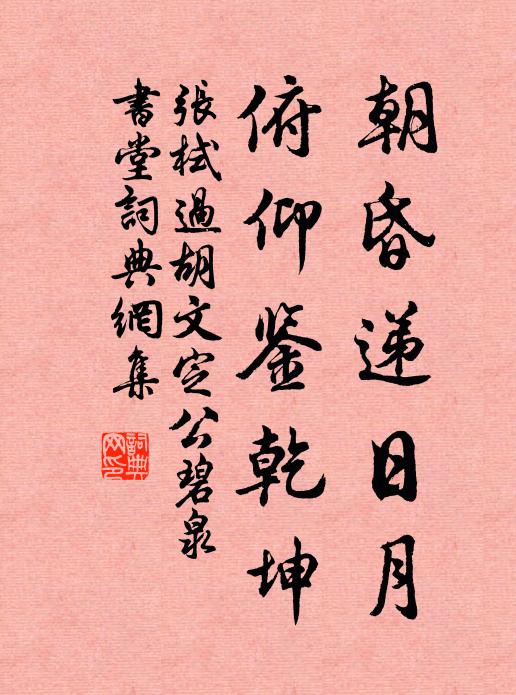 朝昏递日月
俯仰鉴乾坤
張栻過胡文定公碧泉
書堂詞典網集
詞典
网印